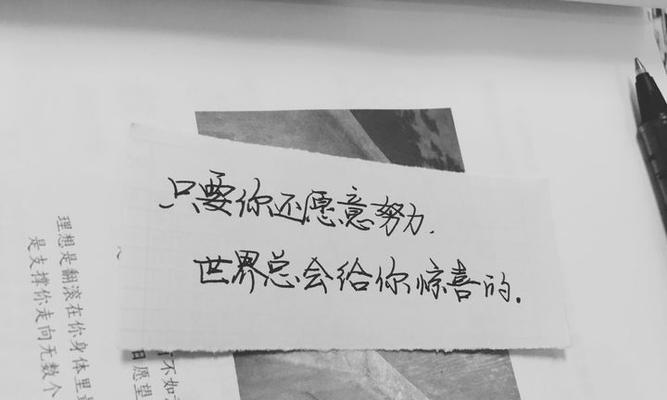 只要你还愿意努力.
世界总会给你惊喜的.
理想是翻滚在你身体里
是支撑你走向无数个
不如
愿望